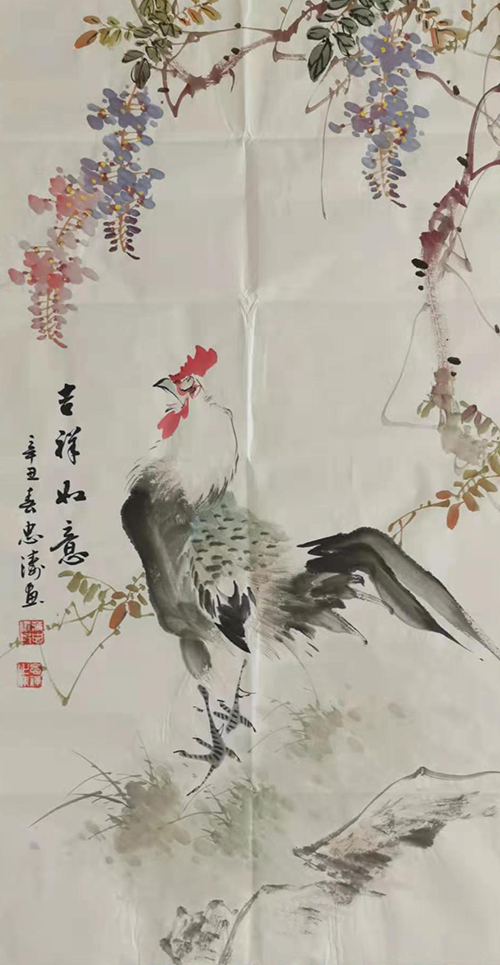 吉祥如意
辛丑春忠涛画